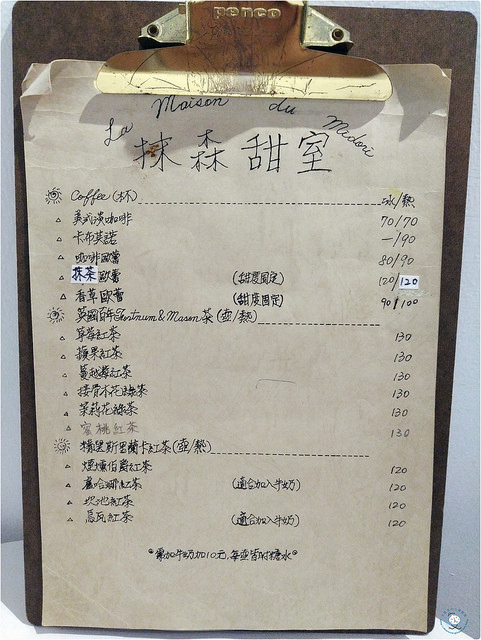 penco
La Maison du Midori
抹森甜室
Coffee (杯) 冰/熱
美式淡咖啡 70/70
卡布其諾 —/90
咖啡歐蕾 80/90
抹茶歐蕾 (甜度固定) 120/120
香草歐蕾 (甜度固定) 90/100
英國百年Fortnum & Mason茶(壺/熱)
草莓紅茶 130
蘋果紅茶 130
蔓越莓紅茶 130
接骨木花綠茶 130
茉莉花綠茶 130
蜜桃紅茶 130
錫蘭卡紅茶(壺/熱)
煙燻伯爵紅茶 120
盧哈娜紅茶 (適合加入牛奶) 120
坎地紅茶 120
烏瓦紅茶 (適合加入牛奶) 120
加牛奶加10元,每壺皆附糖水